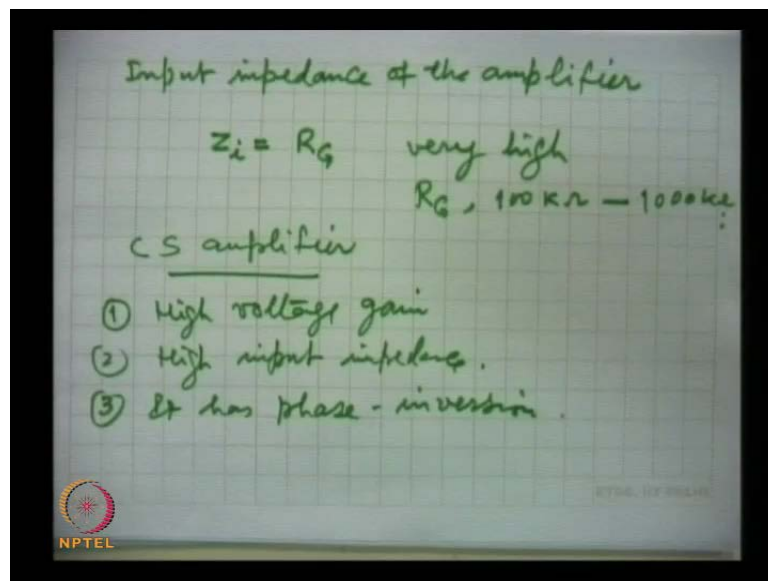 Input impedance of the amplifier
Zi = RG very high
RG, 100 KΩ — 1000 KΩ
CS amplifier
① High voltage gain
② High input impedance.
③ It has phase-inversion.
NPTEL